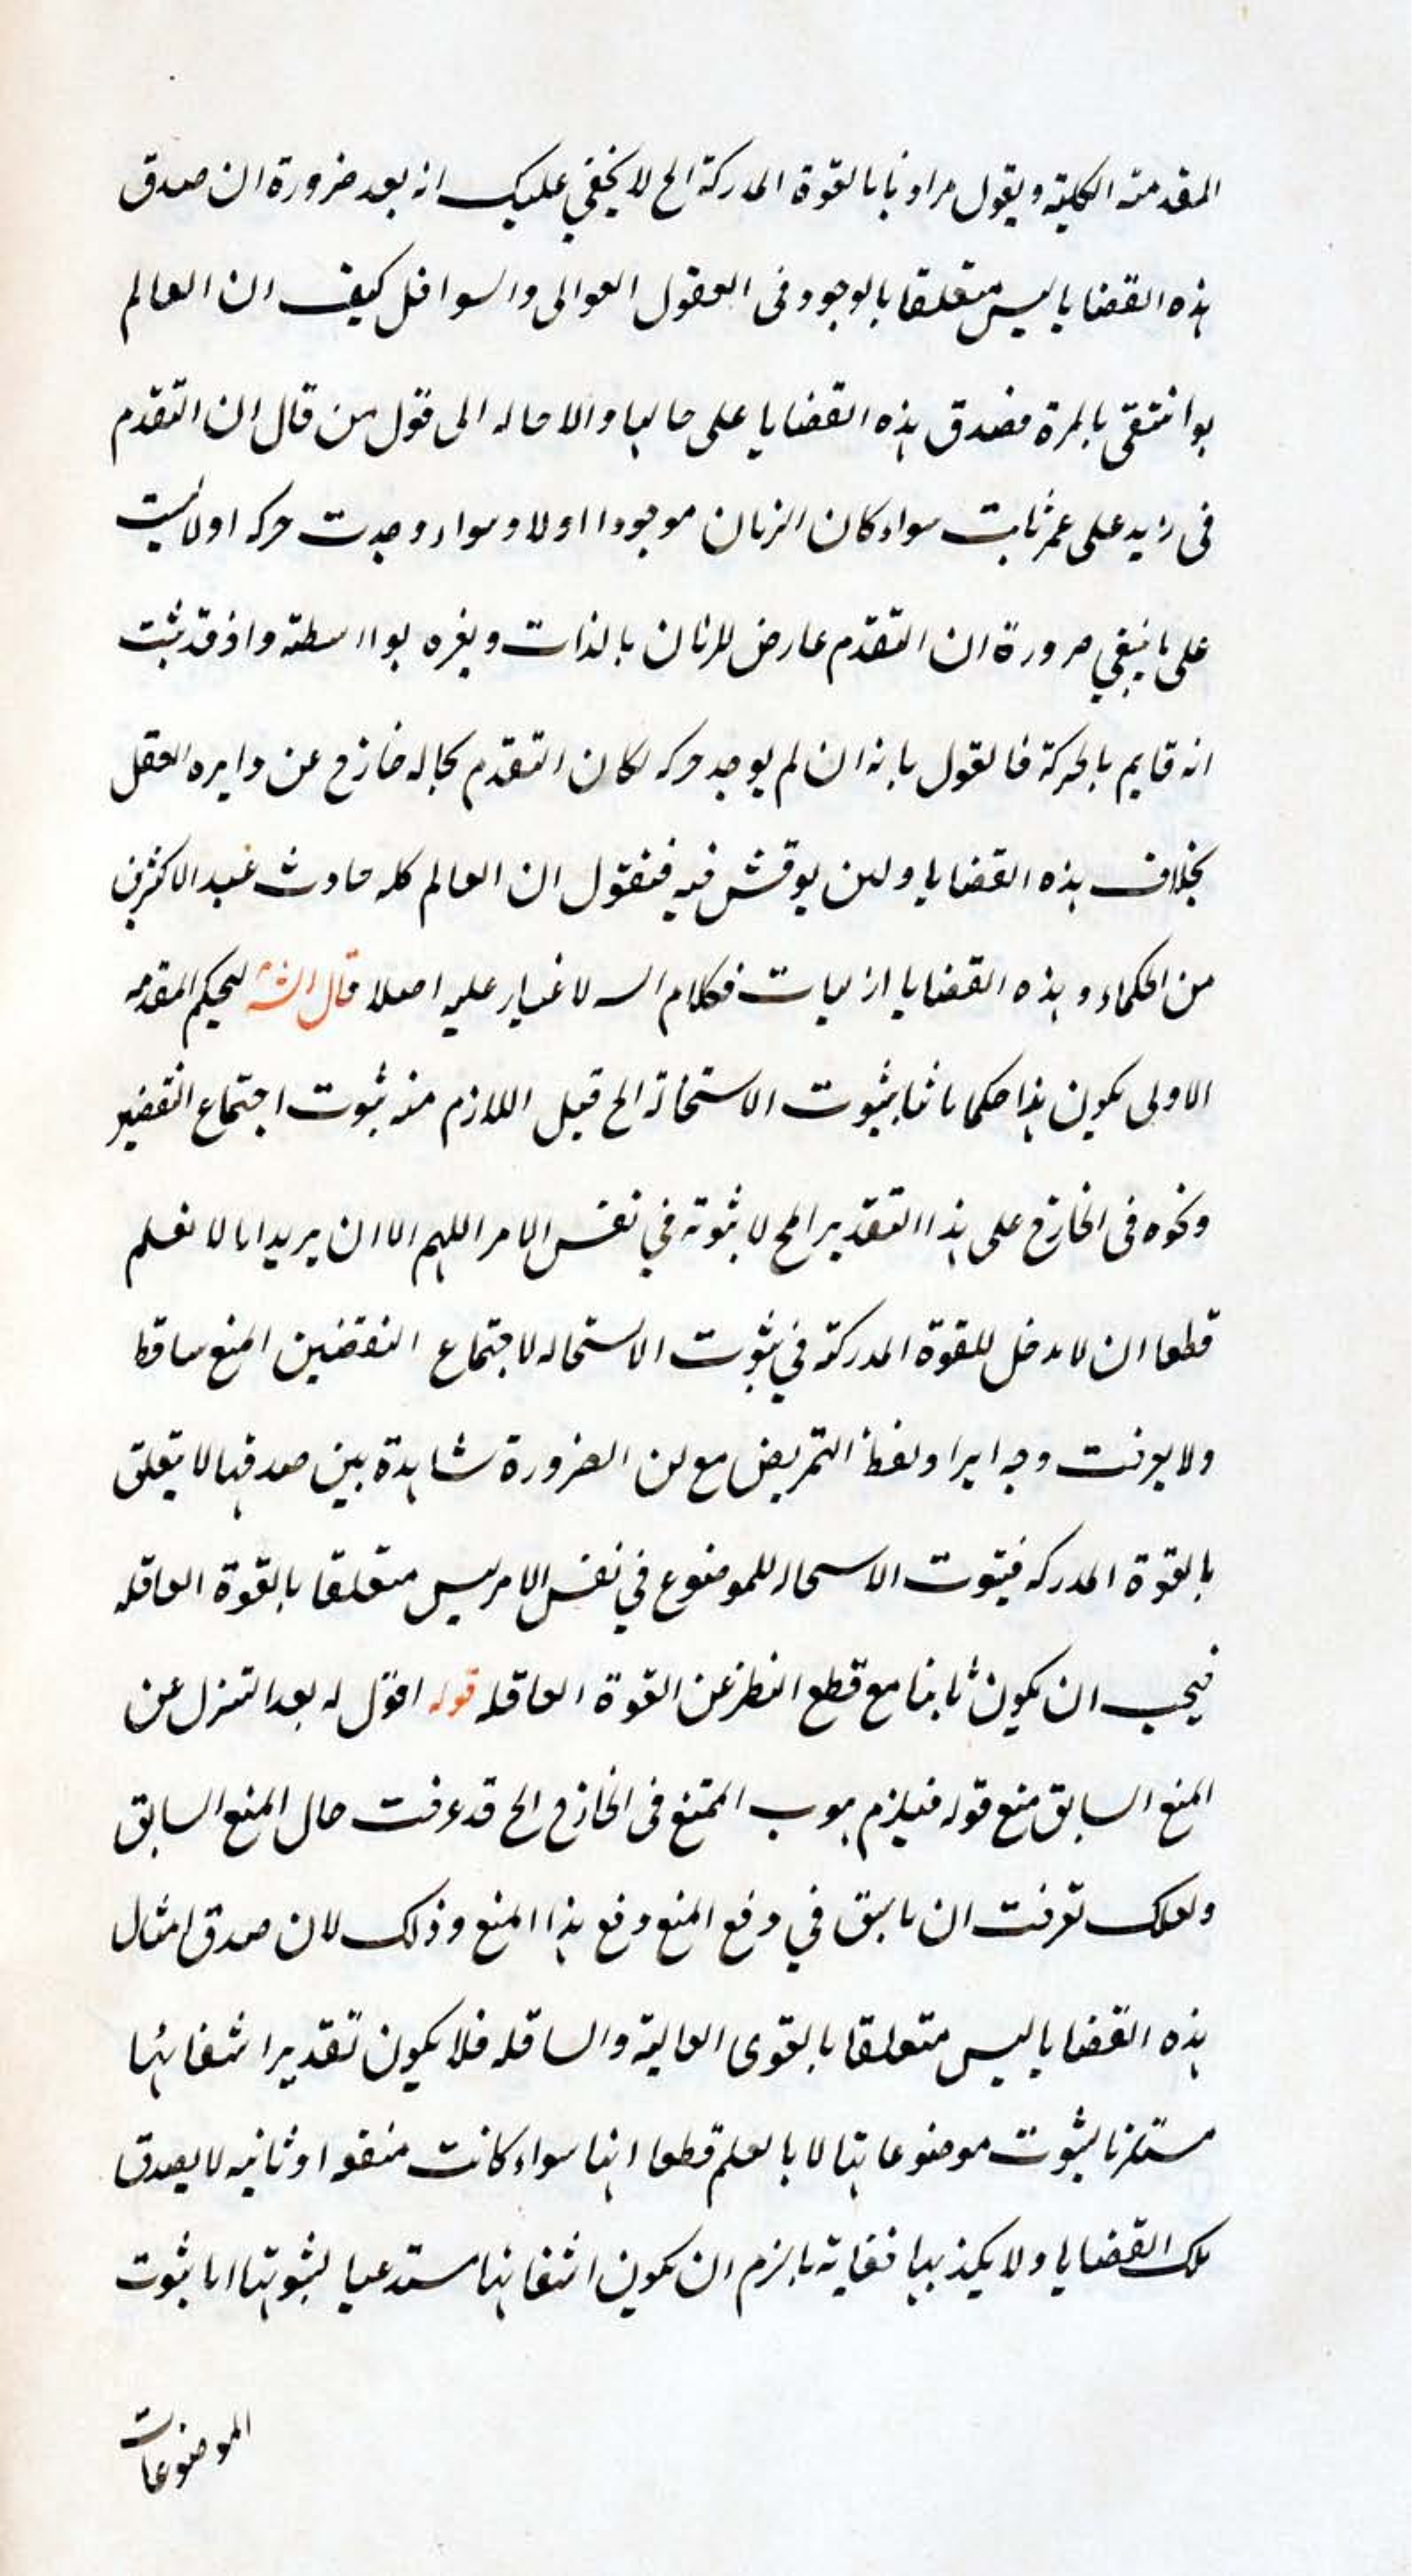 المقدمته الكليته ويقول مرادنا بالقوة المدركة الخ لا يخفي عليك انه بعد ضرورة ان صدق
هذه القضايا ليس متعلقا بالوجود فى العقول العوالى والسوافل كيف ان العالم
لو انتقى بالمرة فصدق هذه القضايا على حالها والاحاله الى قول من قال ان التقدم
فى زيد على عمر ثابت سواء كان الزمان موجودا اولا وسواء وجدت حركه اولا ليست
على ما ينبغي ضرورة ان التقدم عارض للزمان بالذات وبغيره بواسطة واذ قد ثبت
انه قايم بالحركة فالقول بانه ان لم يوجد حركه لكان التقدم بحاله خارج عن دايره العقل
بخلاف هذه القضايا ولئن يوقش فيه فنقول ان العالم كله حادث عند الاكثرين
من الحكماء وهذه القضايا ازليات فكلام السه لا غبار عليه اصلا قال الش ليحكم المقدمه
الاولى يكون هذا حكما ثابتا بثبوت الاستحالة الخ قيل اللازم منه ثبوت اجتماع النقضين
ونحوه فى الخارج على هذا التقدير امح لا ثبوته في نفس الامر اللهم الا ان يريد انا لا نعلم
قطعا ان لا مدخل للقوة المدركة في ثبوت الاستحاله لاجتماع النقضين المنع ساقط
ولا يعرفت وجه ايراد لفظ التمريض مع ان الضرورة شاهدة بين صدقها لا يتعلق
بالقوة المدركه فيثوت الاسحاله للموضوع في نفس الامر ليس متعلقا بالقوة العاقله
فيجب ان يكون ثابتا مع قطع النظر عن القوة العاقله قوله اقول له بعد التنزل عن
المنع السابق منع قوله فيلزم بوب الممتنع فى الخارج الخ قد عرفت حال المنع السابق
ولعلك تعرفت ان ما سبق في دفع المنع دفع هذا المنع وذلك لان صدق امثال
هذه القضايا ليس متعلقا بالقوى العالية والساقله فلا يكون تقدير انتفائها
مستلزما لثبوت موضوعاتها لا بالعلم قطعا انها سواء كانت منفعه او ثانيه لا يصدق
تلك القضايا ولا يكذبها فغاية ما لزم ان يكون انتفائها مستدعيا لثبوتها اما ثبوت
الموضوعات